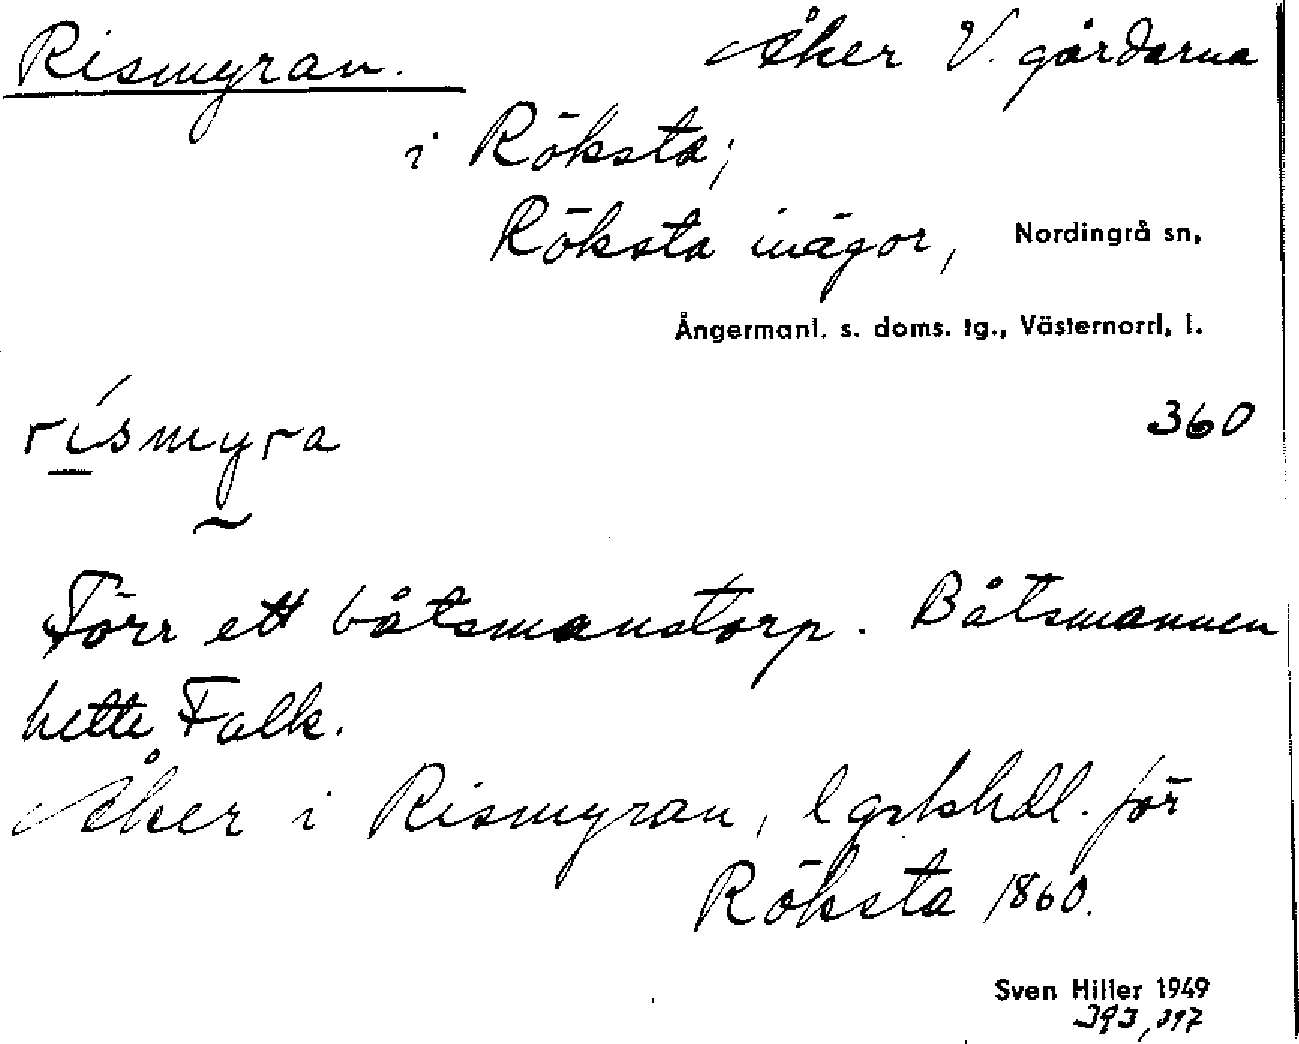 Rismyran. Åker V. gårdarna
i Röksta;
Röksta inägor, Nordingrå sn,
Ångermanl. s. doms. tg., Västernorrl. l.
rísmyra 360
Förr ett båtsmanstorp. Båtsmannen
hette Falk.
Åker i Rismyran, lgskhdl. för
Röksta 1860.
Sven Hiller 1949
393, 397